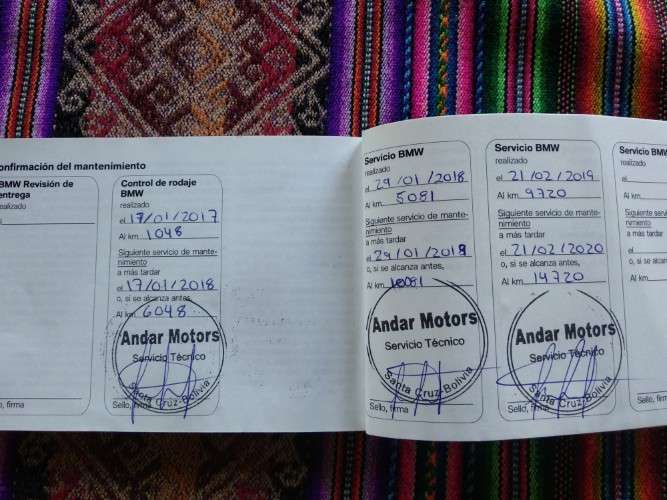 onfirmación del mantenimiento
BMW Revisión de
entrega
realizado
Sello, firma
Control de rodaje
BMW
realizado
el 17/01/2017
Al km 1048
Siguiente servicio de mante-
nimiento
a más tardar
el 17/01/2018
o, si se alcanza antes,
Al km 6048
Andar Motors
Servicio Técnico
Santa Cruz-Bolivia
Sello, firma
Servicio BMW
realizado
el 29/01/2018
Al km 5081
Siguiente servicio de mante-
nimiento
a más tardar
el 29/01/2019
o, si se alcanza antes,
Al km 10081
Andar Motors
Servicio Técnico
Santa Cruz-Bolivia
Sello, firma
Servicio BMW
realizado
el 21/02/2019
Al km 9720
Siguiente servicio de mante-
nimiento
a más tardar
el 21/02/2020
o, si se alcanza antes,
Al km 14720
Andar Motors
Servicio Técnico
Santa Cruz-Bolivia
Sello, firma
Servicio BM
realizado
el
Al km
Siguiente se
nimiento
a más tarda
el
o, si se alca
Al km
Sello, firma